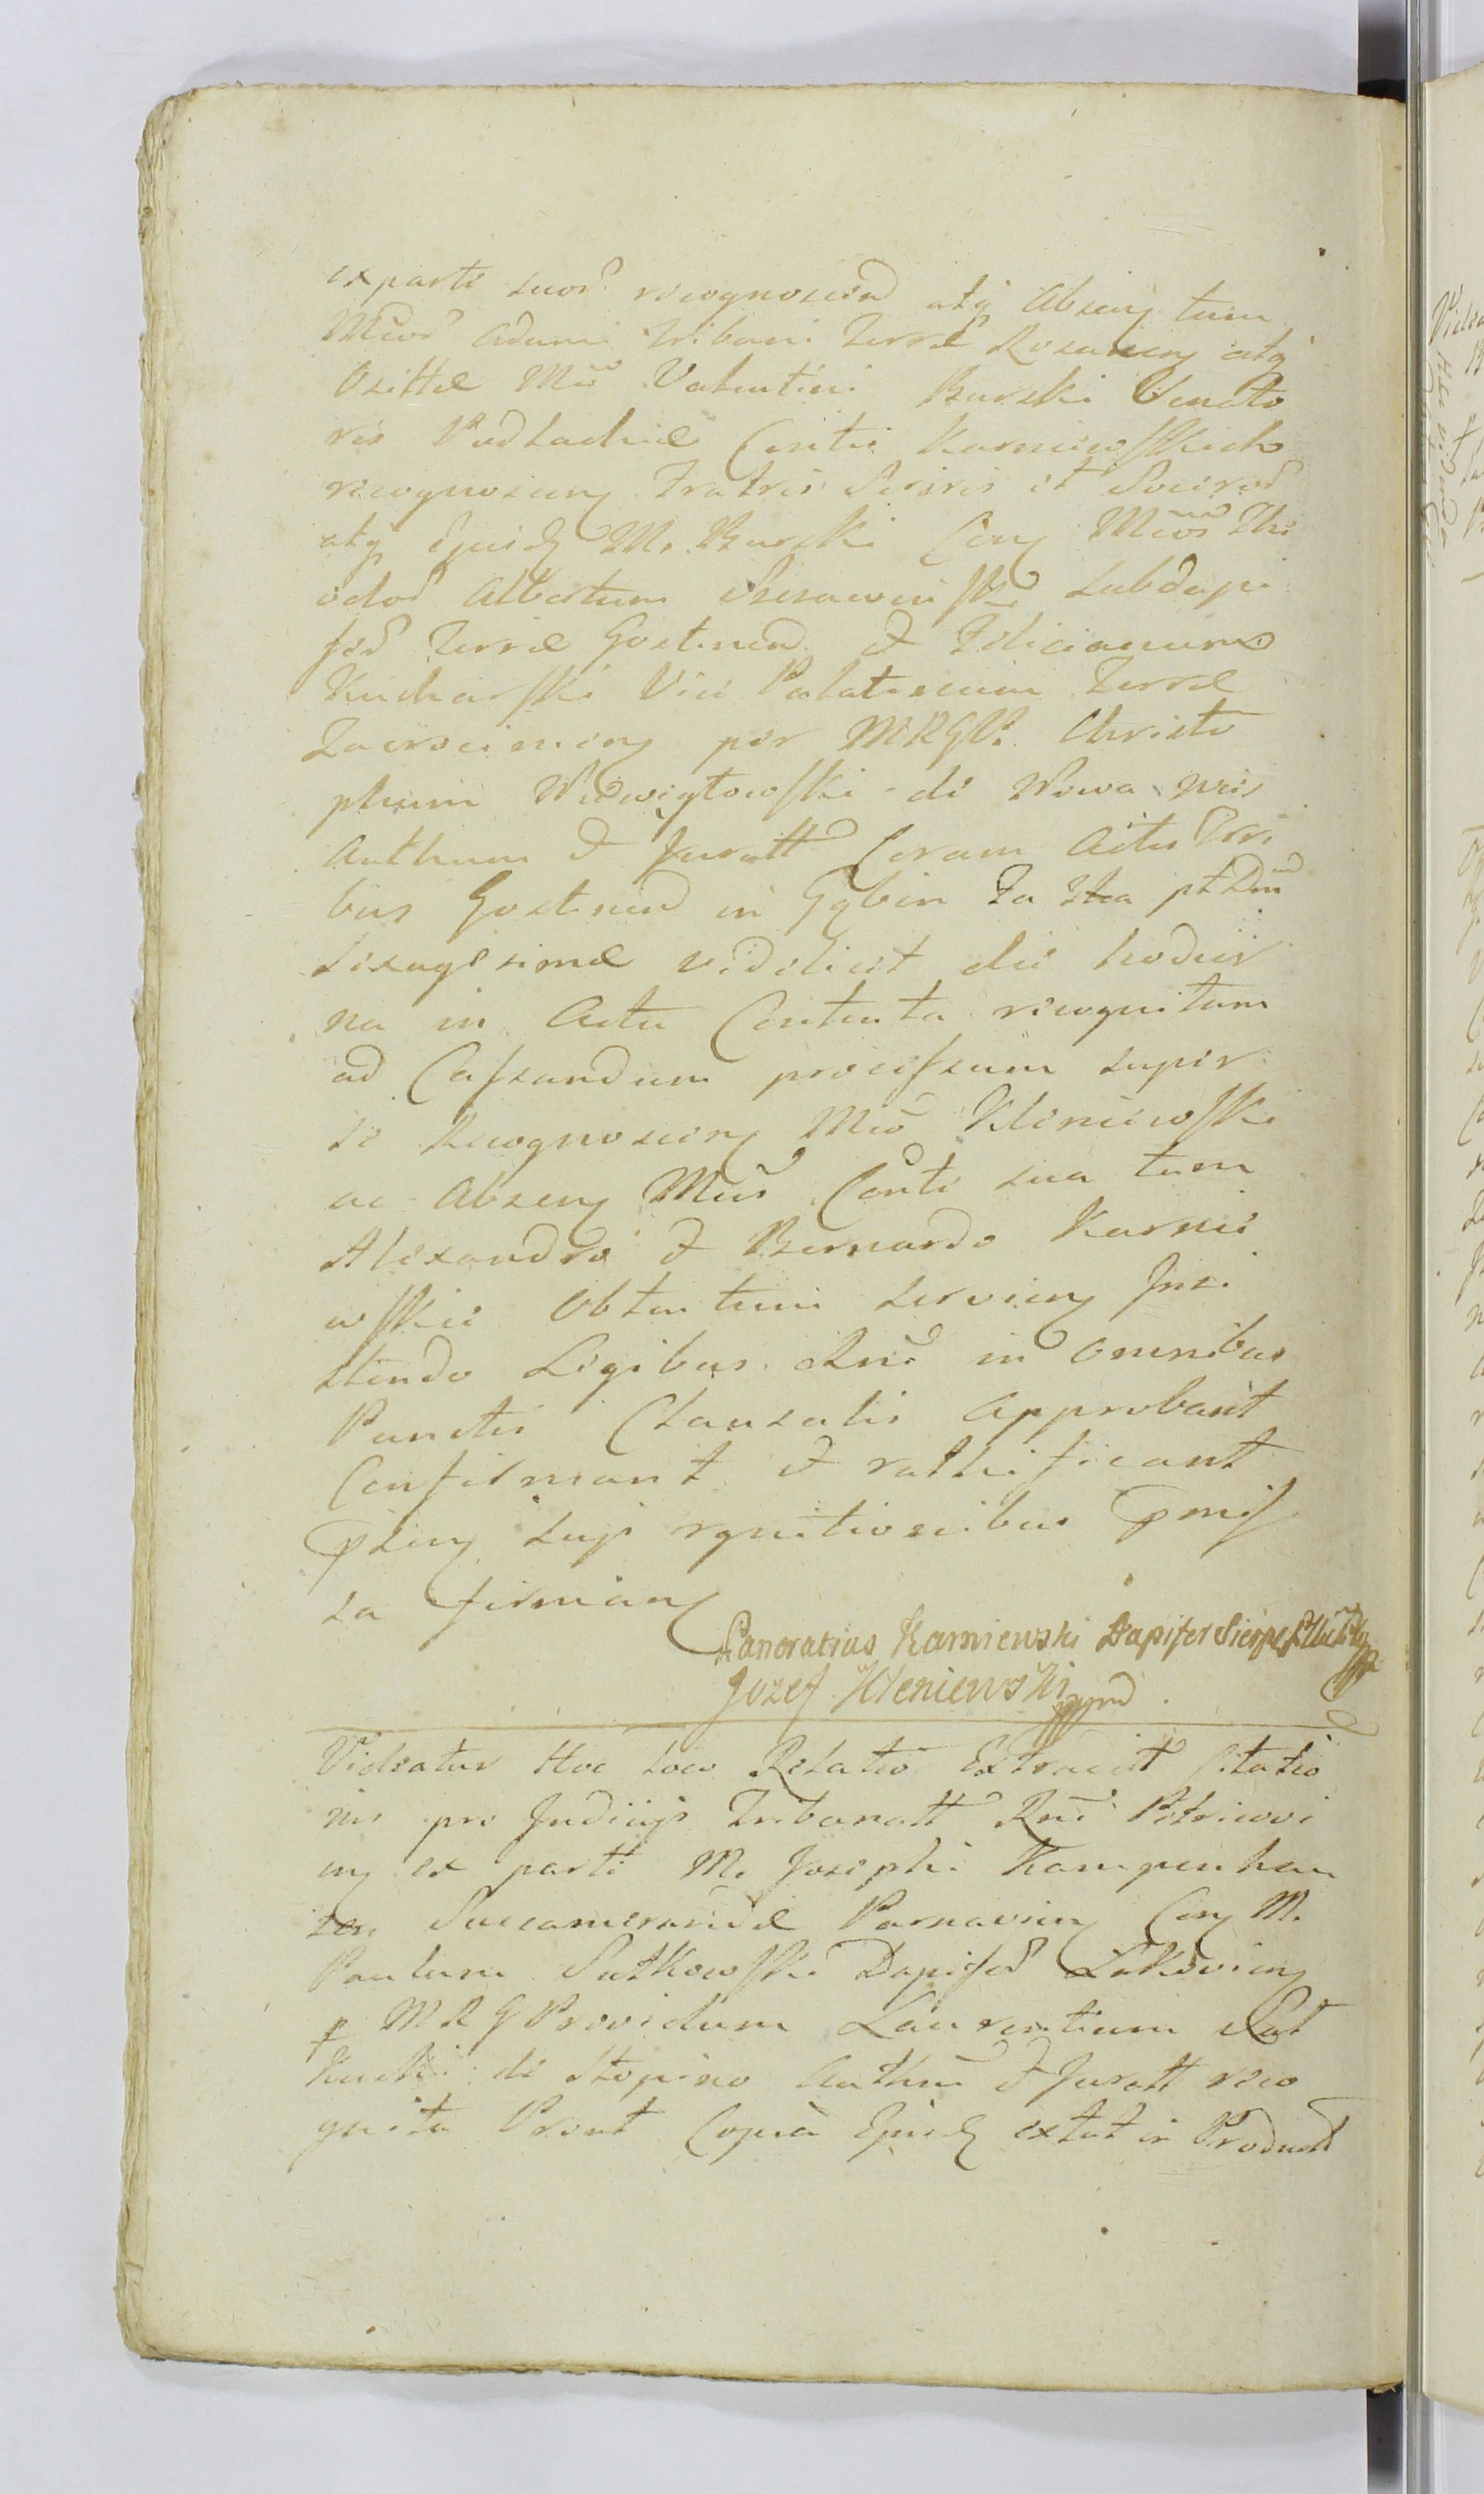 ex parte suor recognoscen atq Absen tum
Mcor Adami Tribuni Terræ Rosanen atq
Osithæ Mco Valentini Burski Venato
ris Podlachiæ Conthi Karniewskich
recognoscen Fratris Sororis et Soceror
atq Ejusd M. Burski Con Mcos The
odor Albertum Szczawinski Subdapi
fer Terræ Gostinen & Felicianum
Kucharski Vice Palatinum Terræ
Zacrocimen per MRGP. Christo
phum Niedwigłowski de Nowa wies
Authum & Juratt Coram Actis Trri
bus Gostinen in Gąbin Fa 2da pt Dnic
Sexagesimæ videlicet die hodier
na in Actu Contenta recognitam
ad Cassandum processum super
se Recognoscen Mco Kleniewski
ac Absen Mcis Conte sua tum
Alexandro & Bernardo Karnie
wskie Obtentum servien Insi
stendo Legibus Rni in omnibus
Punctis Clausulis Approbant
Confirmant & rathificant
pszen suis rgnitionibus pmis
sa firman
Pancratius Karniewski Dapifer Sierpc
Jozef Kleniewski mp
Videatur Hoc loco Relatio Extracitt Citatio
nis pro Judiciis Tribunatt Rni Petricovi
en ex parte M. Josephi Kampenhau
zen Succamerariidæ Parnavien Con M.
Paulum Sutkowski Dapifer Lukovien
p MRG Providum Laurentium Rut
kucki de Słopino Authm & Juratt reco
gnita Prout Copia Ejusd extat in Produtt